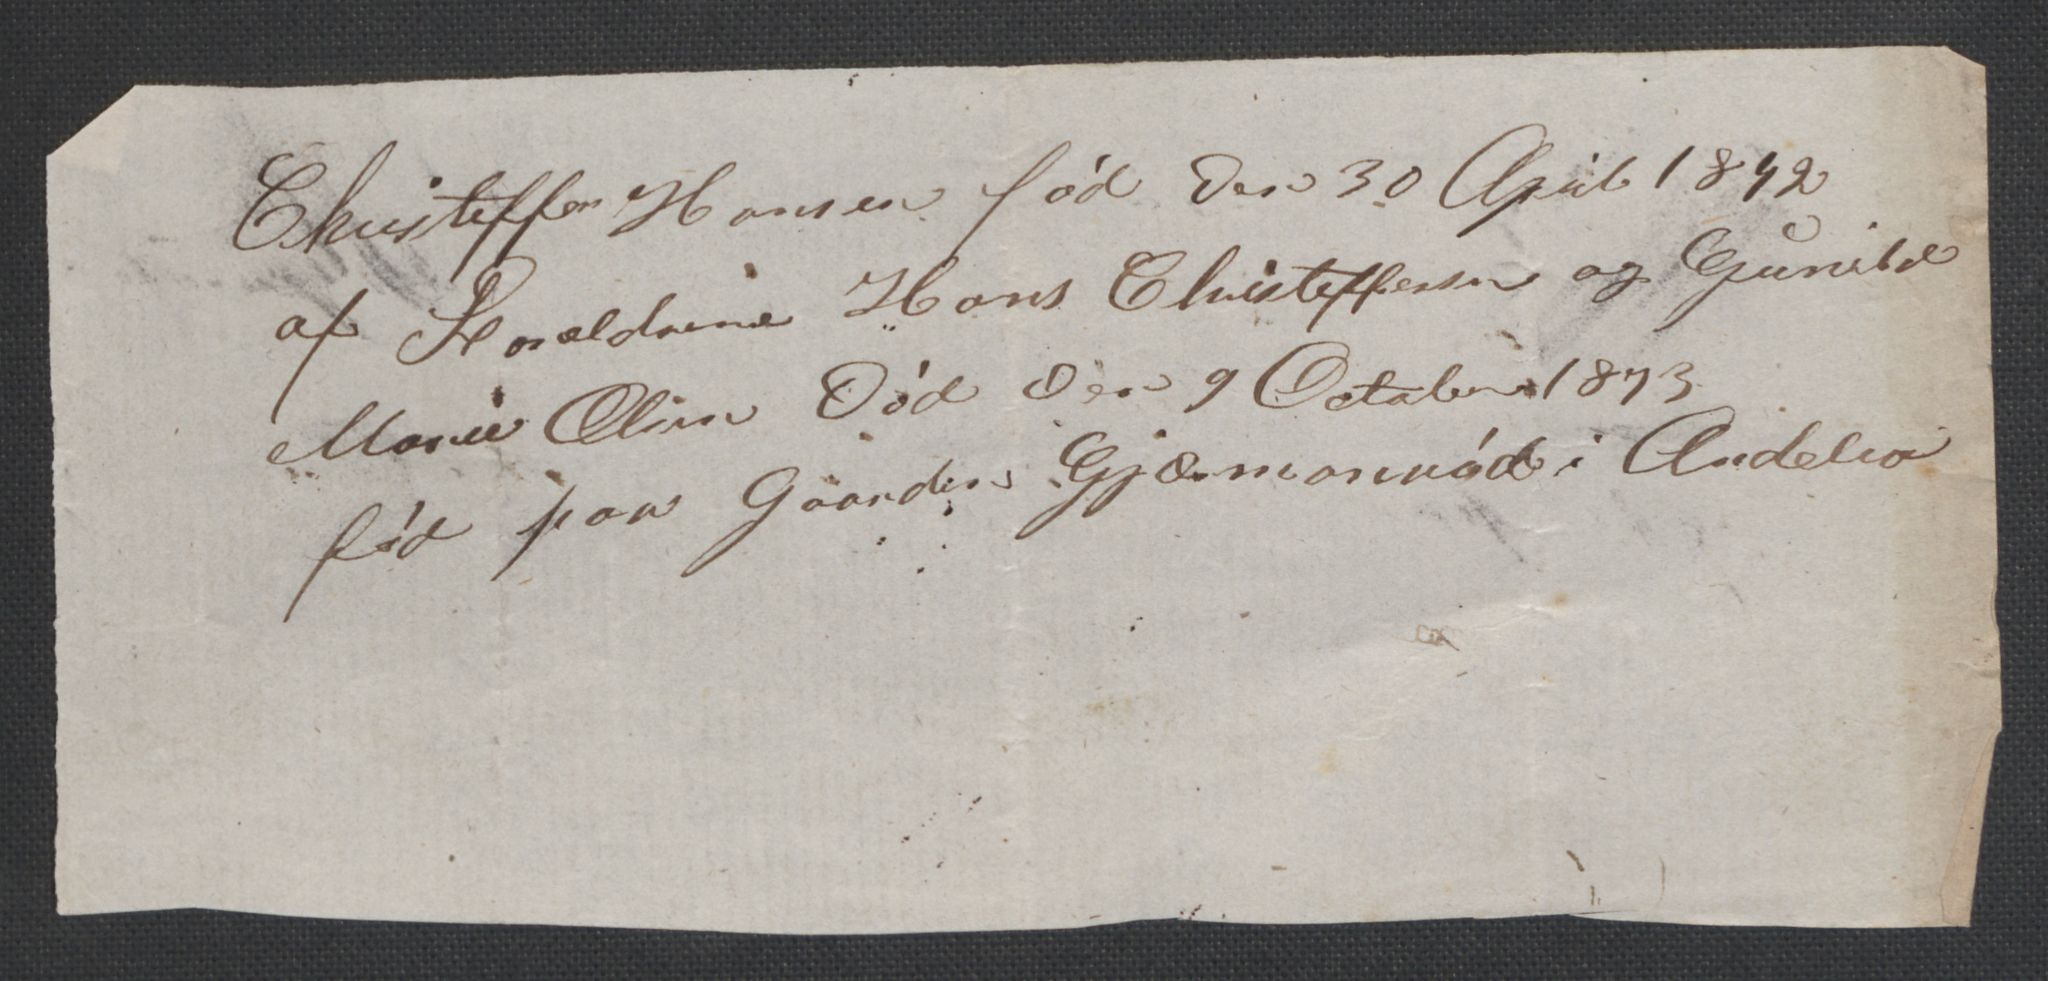 Christoffer Hansen fød den 30 April 1842
af Foreldrene Hans Christoffersen og Gunild
Marie Olsen Død den 9 October 1873
fød paa Gaarden Gjærmanrød i Andebu